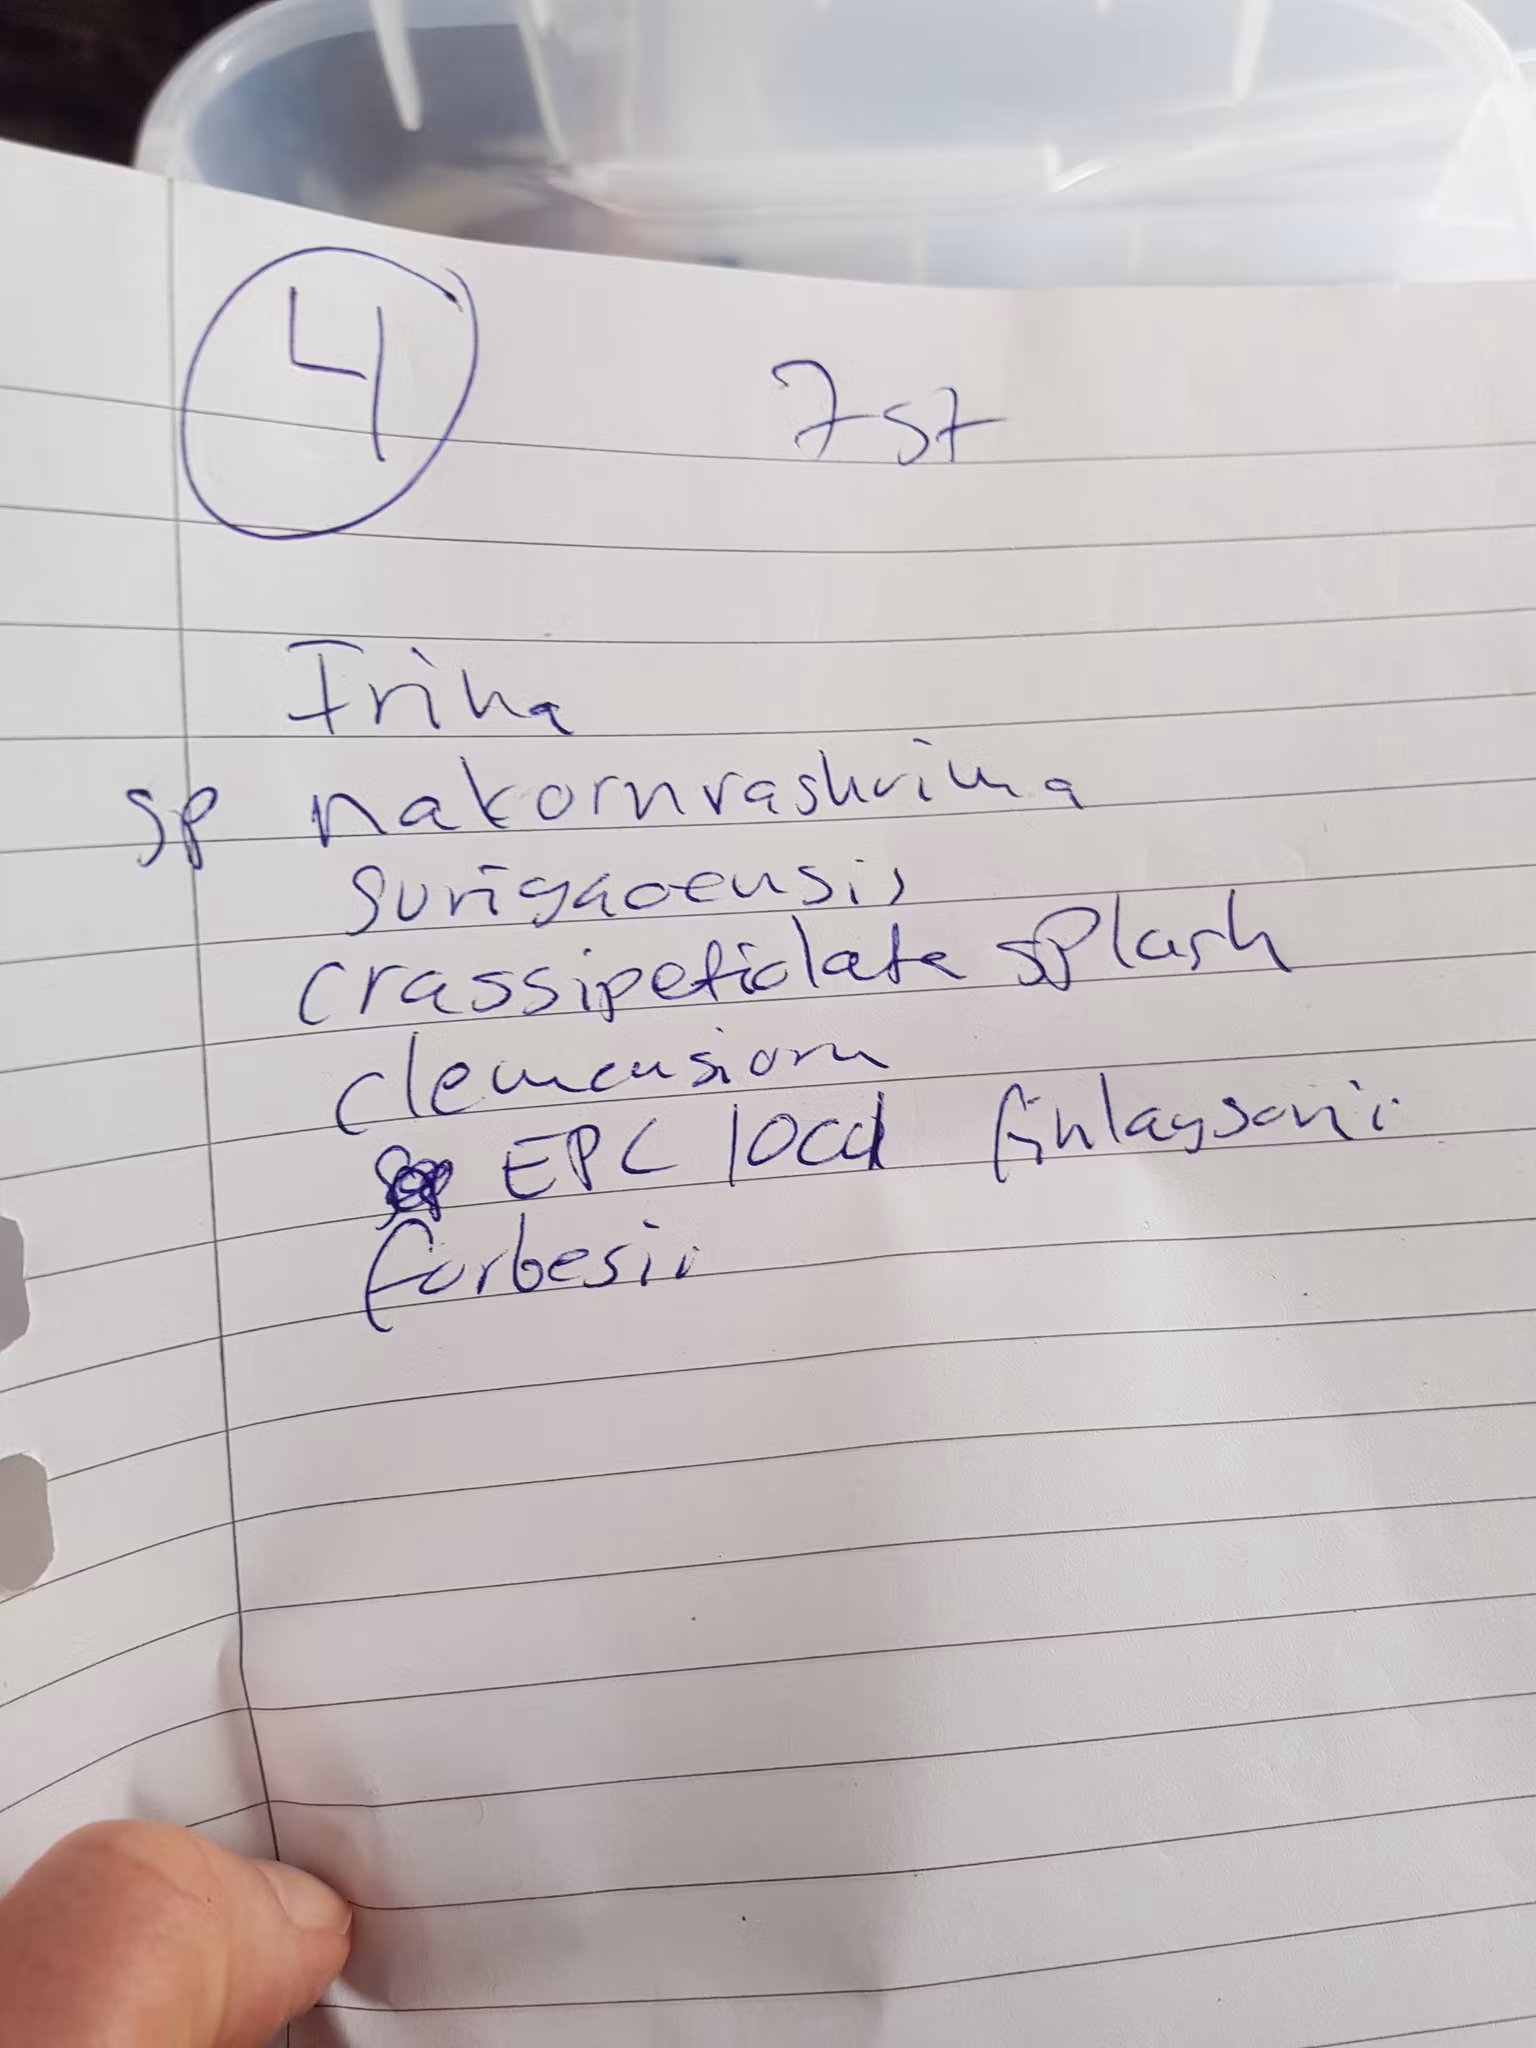 4 7st
Irina
sp nakornrashrima
surigaoensis
crassipetiolata splash
clemensiorm
EPC local finlaysonii
forbesii